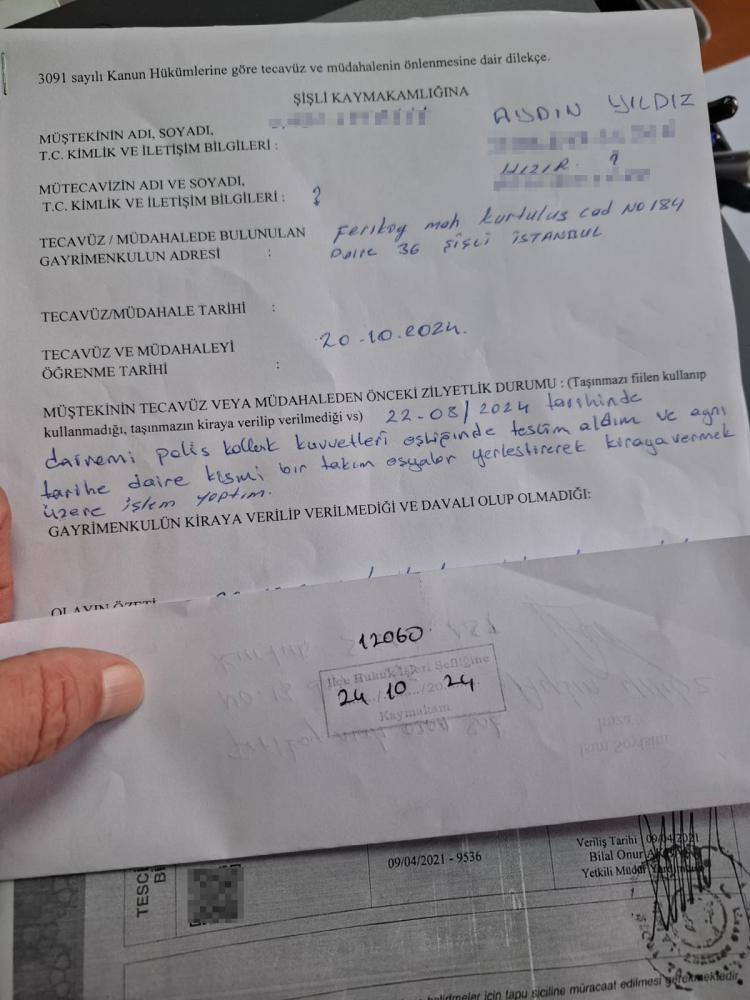 3091 sayılı Kanun Hükümlerine göre tecavüz ve müdahalenin önlenmesine dair dilekçe.
ŞİŞLİ KAYMAKAMLIĞINA
MÜŞTEKİNİN ADI, SOYADI,
T.C. KİMLİK VE İLETİŞİM BİLGİLERİ :
AYDIN YILDIZ
MÜTECAVİZİN ADI VE SOYADI,
T.C. KİMLİK VE İLETİŞİM BİLGİLERİ :
?
HIZIR.
TECAVÜZ / MÜDAHALEDE BULUNULAN
GAYRİMENKULUN ADRESİ :
Feriköy mah kurtuluş cad NO 184
Daire 36 şişli İSTANBUL
TECAVÜZ/MÜDAHALE TARİHİ :
TECAVÜZ VE MÜDAHALEYİ
ÖĞRENME TARİHİ :
20.10.2024.
MÜŞTEKİNİN TECAVÜZ VEYA MÜDAHALEDEN ÖNCEKİ ZİLYETLİK DURUMU : (Taşınmazı fiilen kullanıp
kullanmadığı, taşınmazın kiraya verilip verilmediği vs) 22-08/2024 tarihinde
dairemi polis kolluk kuvvetleri eşliğinde teslim aldım ve aynı
tarihe daire kısmi bir takım eşyalar yerleştirerek kiraya vermek
üzere işlem yaptım.
GAYRİMENKULÜN KİRAYA VERİLİP VERİLMEDİĞİ VE DAVALI OLUP OLMADIĞI:
OLAYIN ÖZETİ
12060
İlçe Hukuk İşleri Şefliğine
24 / 10 / 2024
Kaymakam
TESCİ
09/04/2021 - 9536
Veriliş Tarihi 09/04/2021
Bilal Onur
Yetkili Müdür
için tapu siciline müracaat edilmesi gerekmektedir